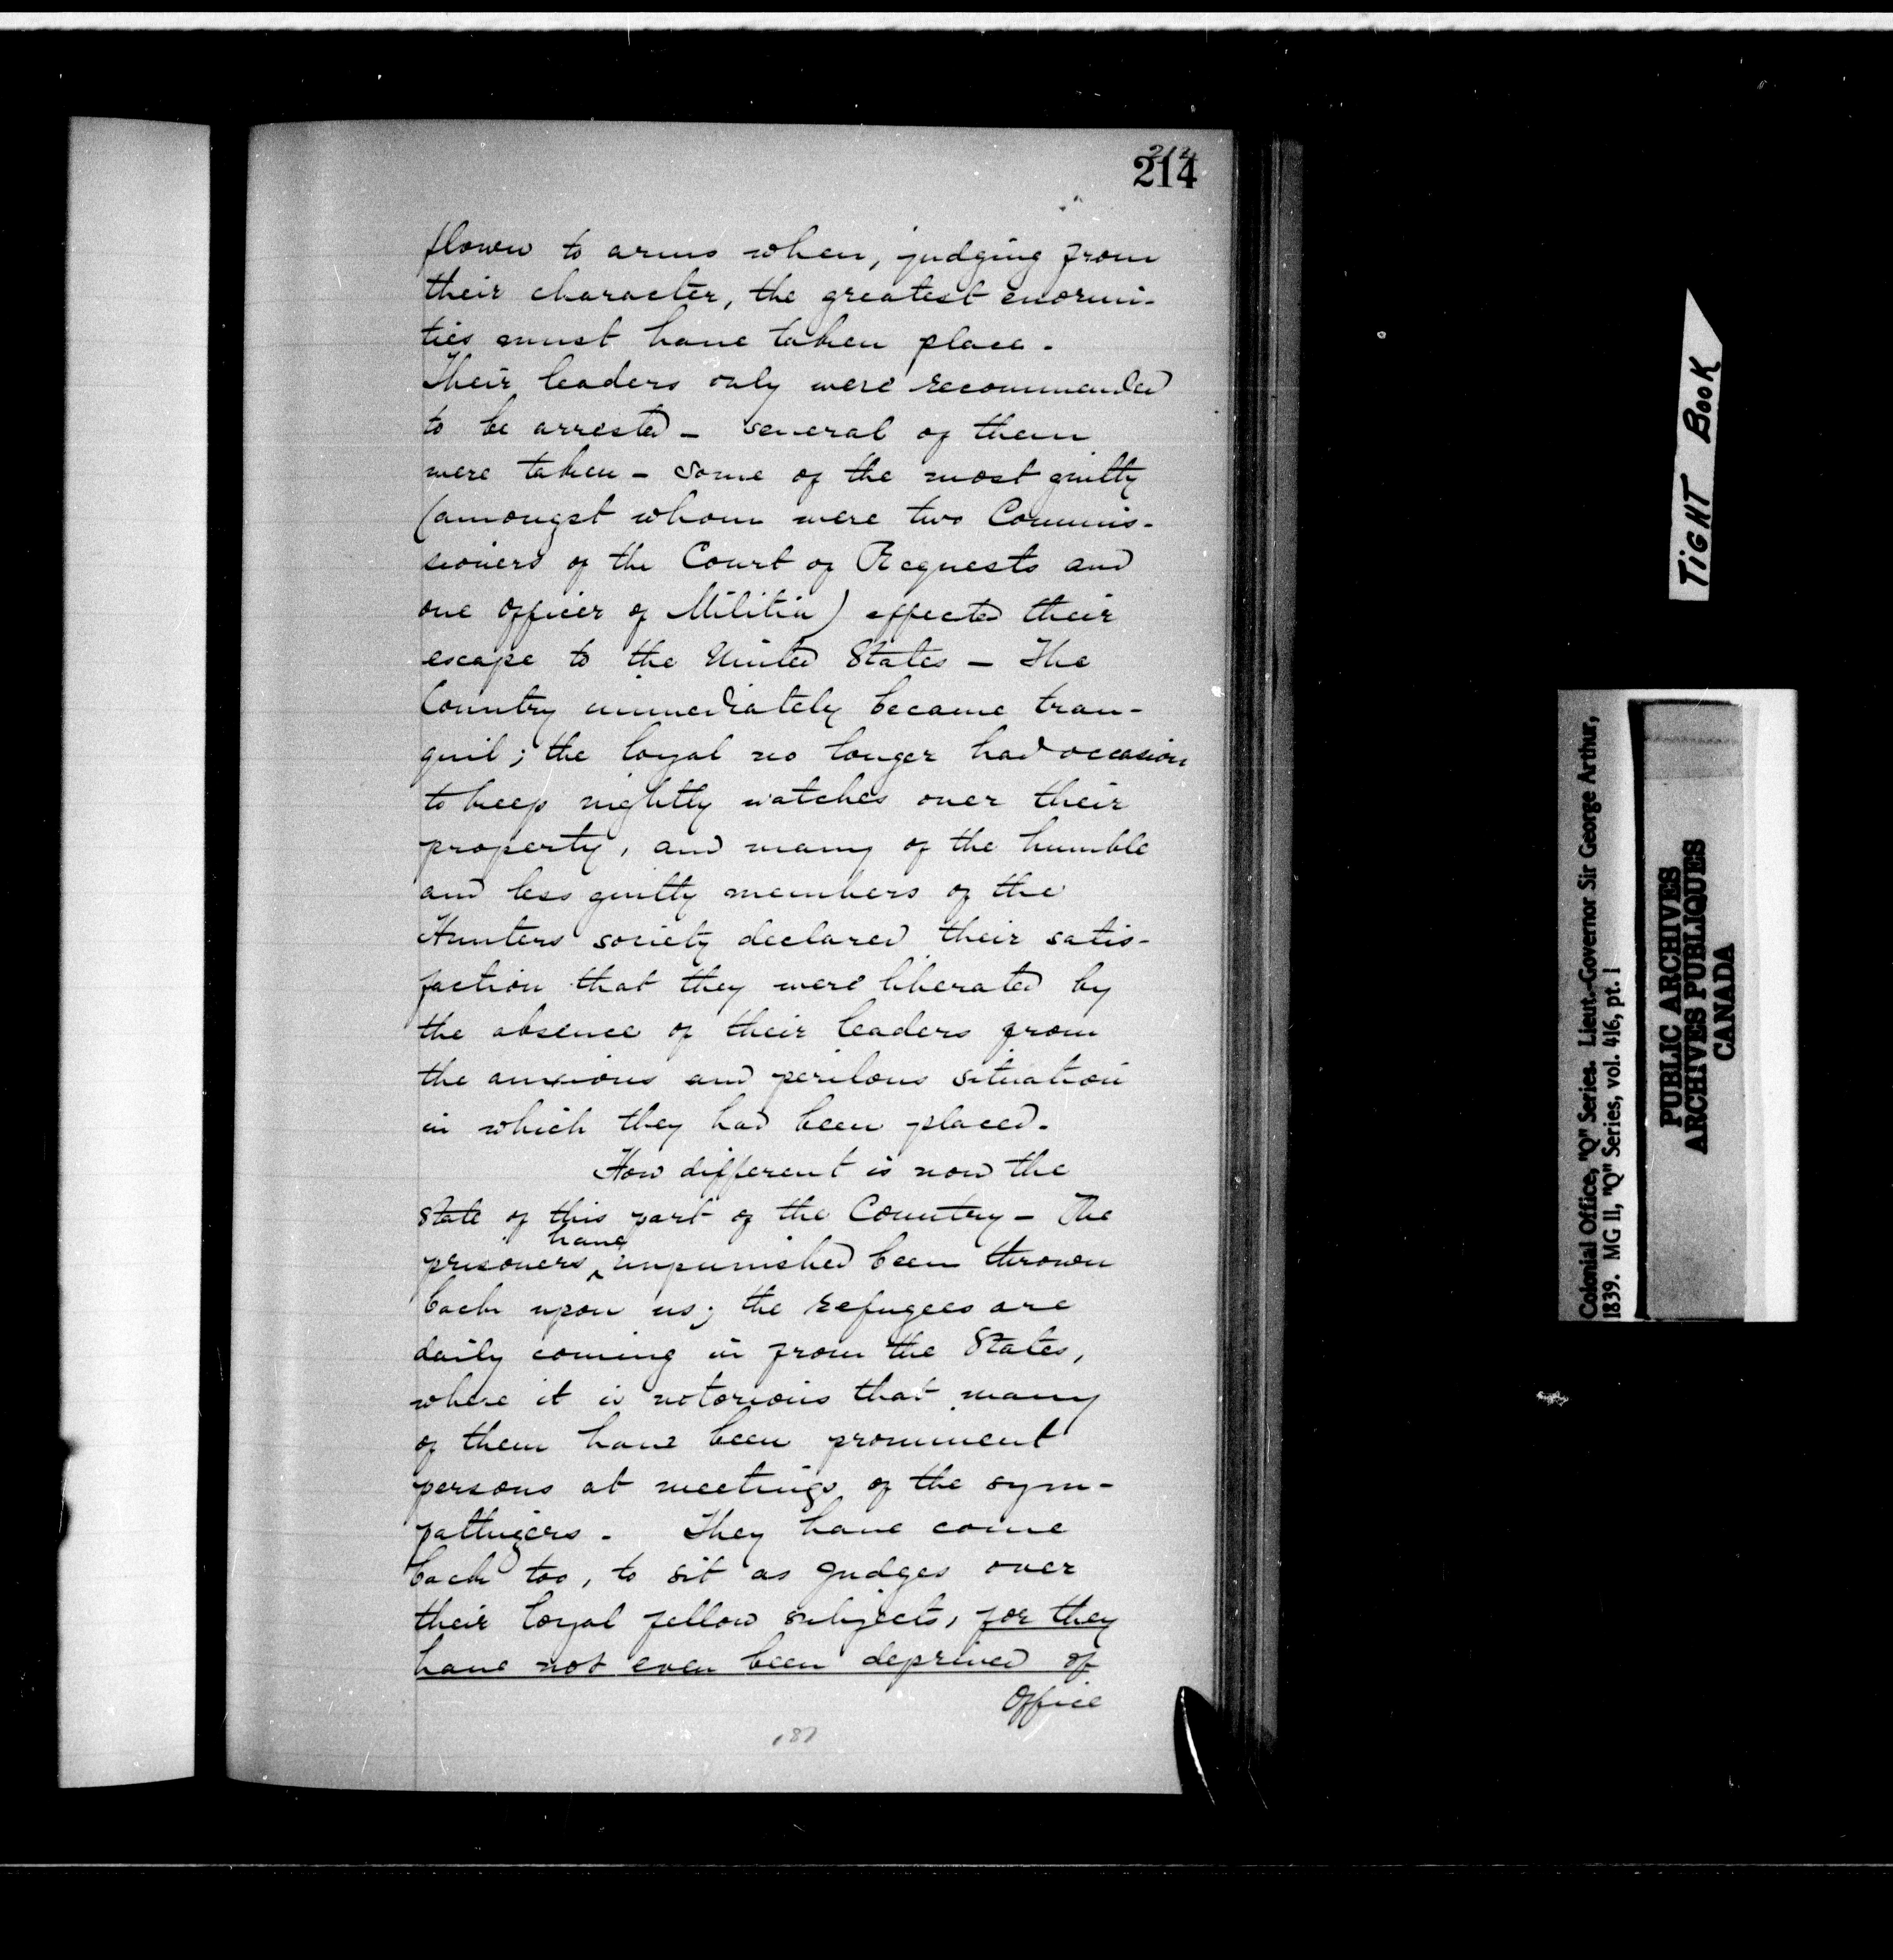 214
214
flown to arms when, judging from
their character, the greatest enormi-
ties must have taken place.
Their leaders only were recommended
to be arrested - several of them
were taken - some of the most guilty
(amongst whom were two Commis-
sioners of the Court of Requests and
one officer of Militia) effected their
escape to the United States - The
Country immediately became tran-
quil; the loyal no longer had occasion
to keep nightly watches over their
property, and many of the humble
and less guilty members of the
Hunters society declared their satis-
faction that they were liberated by
the absence of their leaders from
the anxious and perilous situation
in which they had been placed.
How different is now the
state of this part of the Country - The
have
prisoners ^ unpunished been thrown
back upon us; the refugees are
daily coming in from the States,
where it is notorious that many
of them have been prominent
persons at meetings of the sym-
pathizers. They have come
back too, to sit as Judges over
their loyal fellow subjects, for they
have not even been deprived of
Office
187
TIGHT BOOK
Colonial Office, "Q" Series. Lieut.-Governor Sir George Arthur,
1839. MG 11, "Q" Series, vol. 416, pt. 1
PUBLIC ARCHIVES
ARCHIVES PUBLIQUES
CANADA